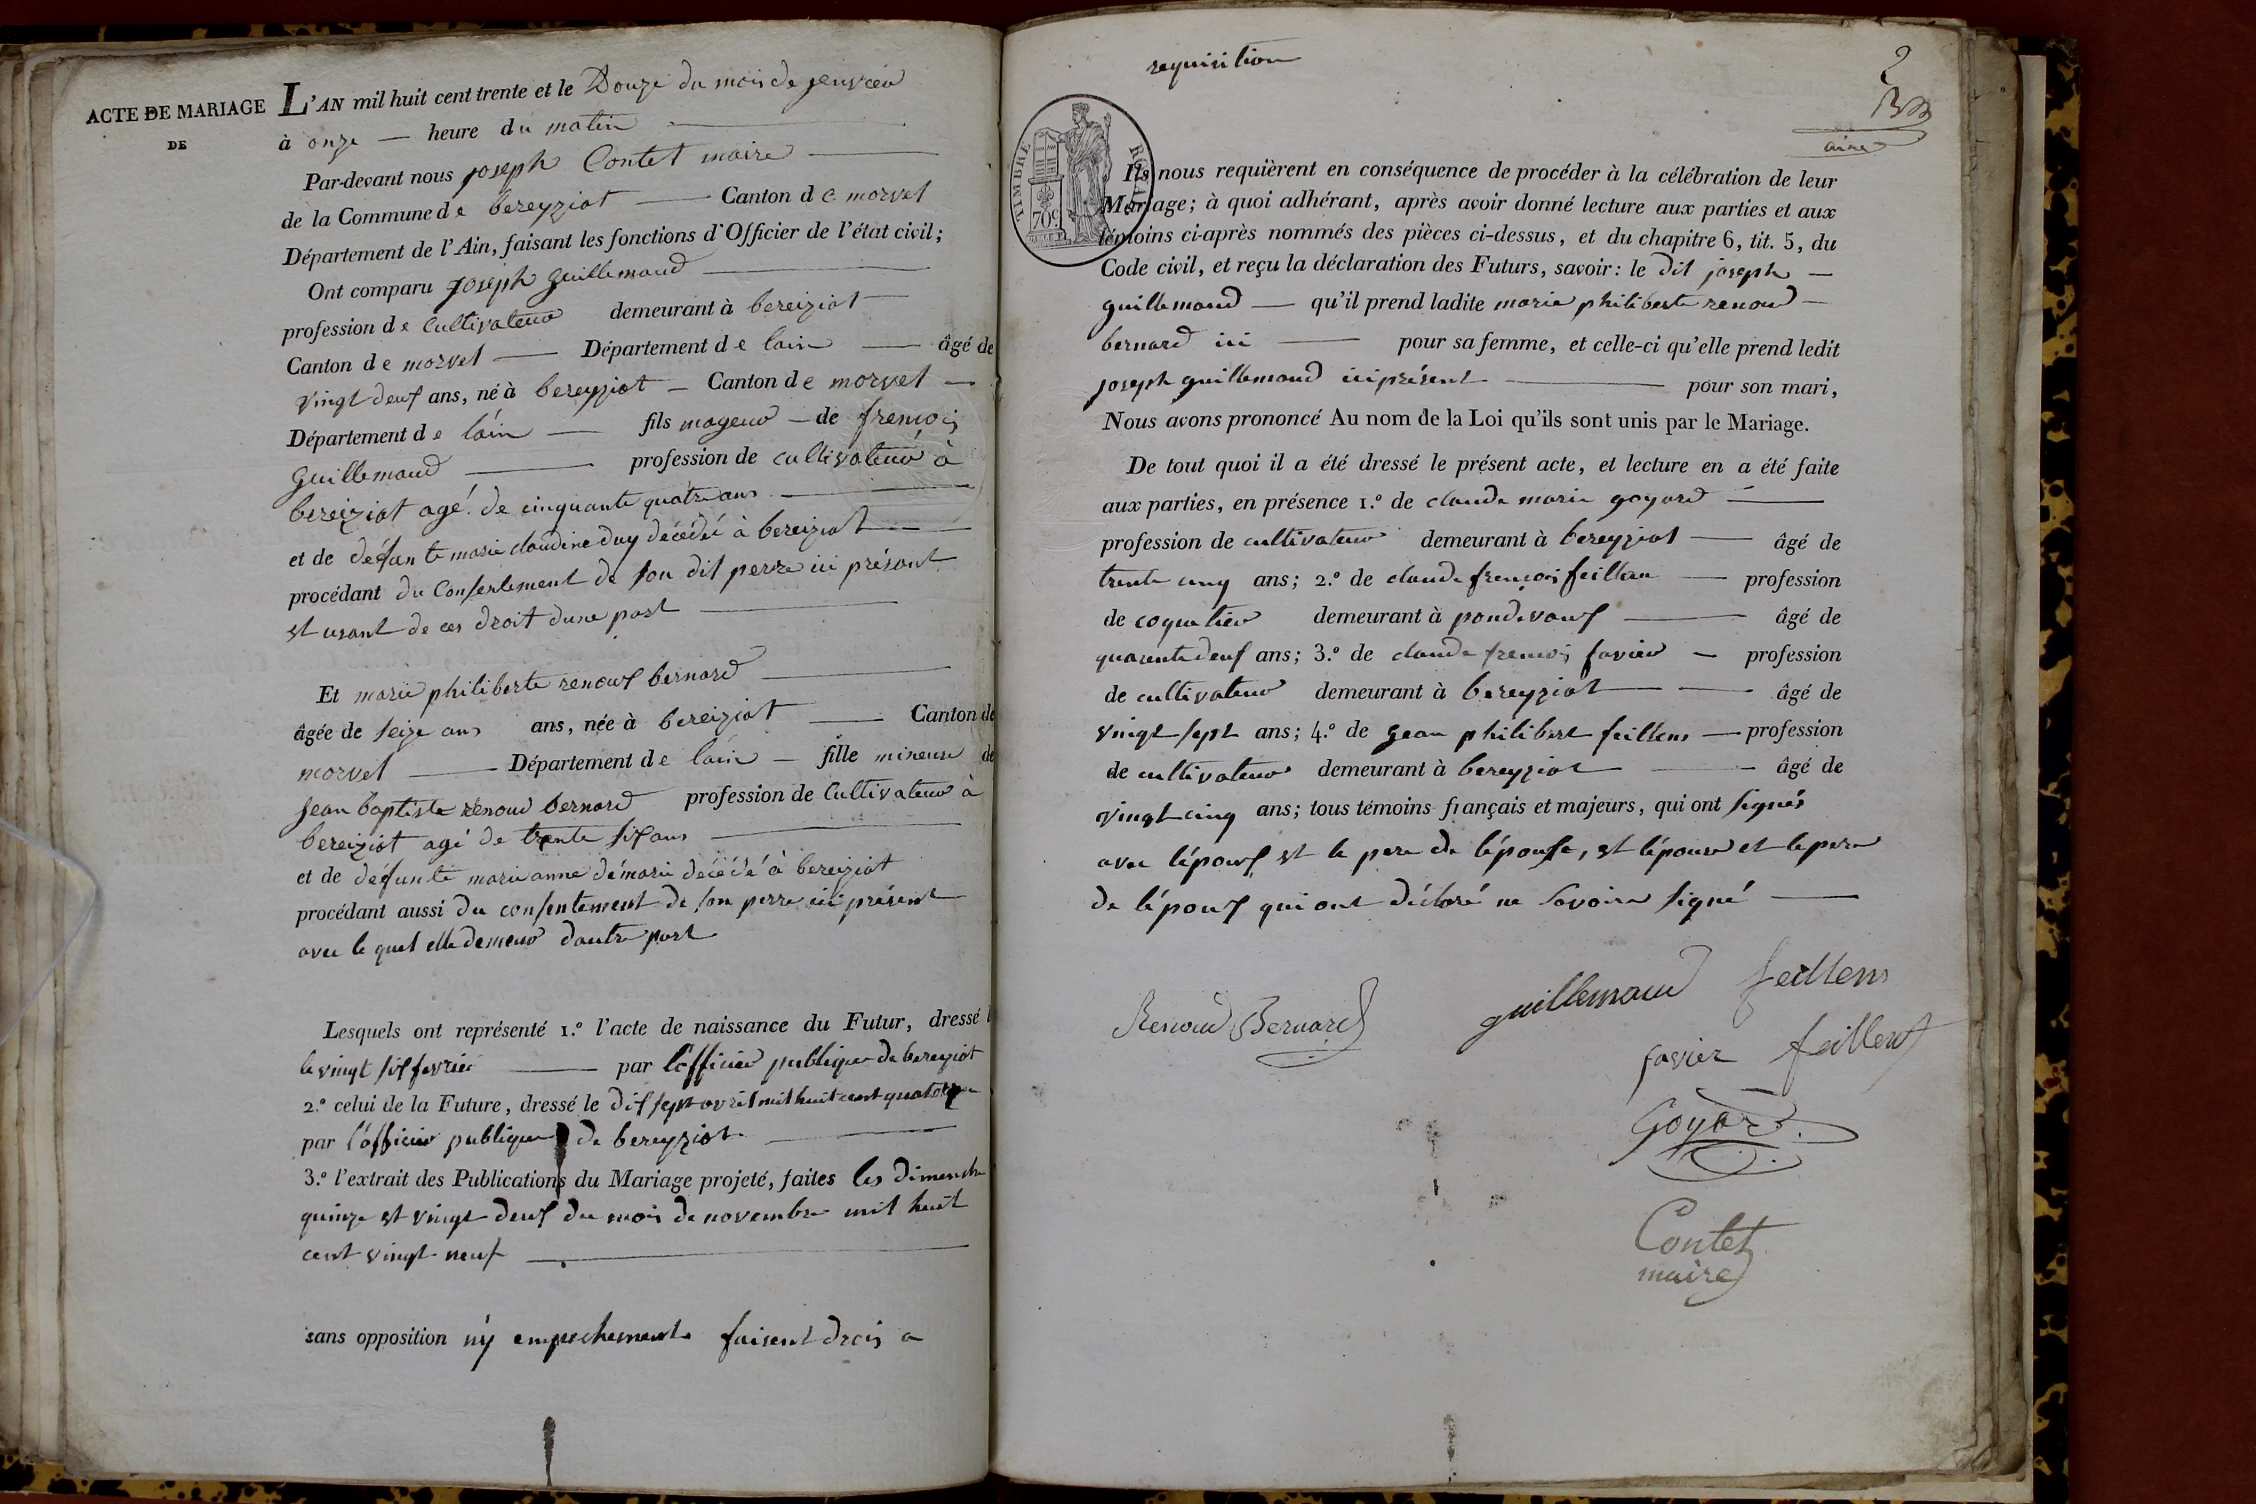 ACTE DE MARIAGE
DE
L'AN mil huit cent trente et le Douze du mois de jenvier
à onze — heure du matin
Par-devant nous joseph Contet maire
de la Commune de bereyziat — Canton de morvel
Département de l'Ain, faisant les fonctions d'Officier de l'état civil;
Ont comparu joseph guillemaud
profession de Cultivateur demeurant à bereiziat
Canton de morvel — Département de lain — âgé de
vingt deux ans, né à bereyziat — Canton de morvel —
Département de lain — fils mageur — de frençois
guillemaud — profession de cultivateur à
bereiziat agé de cinquante quatre ans
et de defunte marie claudine duy décédé à bereiziat
procédant du Consentement de son dit perre ici présent
et usant de ces droit dune part
Et marie philiberte renoux bernard
âgée de seize ans ans, née à bereiziat — Canton de
morvel — Département de lain — fille mineure de
jean baptiste renoud bernard profession de Cultivateur à
bereiziat agé de trante six ans
et de défunte marie anne démarie décédé à bereiziat
procédant aussi du consentement de son perre ici présent
avec le quel elle demeur dautre part
Lesquels ont représenté 1.º l'acte de naissance du Futur, dressé l
le vingt six fevrier — par l'officier publique de bereyziat
2.º celui de la Future, dressé le dix sept avril mil huit cent quatorze
par l'officier publique de bereyziat
3.º l'extrait des Publications du Mariage projeté, faites les dimenche
quinze et vingt deux du mois de novembre mil huit
cent vingt neuf
sans opposition ny empechement faisent drois a
requisition
2
TIMBRE ROYAL
70c
Ils nous requièrent en conséquence de procéder à la célébration de leur
Mariage; à quoi adhérant, après avoir donné lecture aux parties et aux
témoins ci-après nommés des pièces ci-dessus, et du chapitre 6, tit. 5, du
Code civil, et reçu la déclaration des Futurs, savoir: le dit joseph —
guillemaud — qu'il prend ladite marie philiberte renoud —
bernard ici — pour sa femme, et celle-ci qu'elle prend ledit
joseph guillemaud ici présent — pour son mari,
Nous avons prononcé Au nom de la Loi qu'ils sont unis par le Mariage.
De tout quoi il a été dressé le présent acte, et lecture en a été faite
aux parties, en présence 1.º de claude marie goyard —
profession de cultivateur demeurant à bereyziat — âgé de
trente cinq ans; 2.º de claude françois feillen — profession
de coquetier demeurant à pondevaux — âgé de
quarente deux ans; 3.º de claude frençois favier — profession
de cultivateur demeurant à bereyziat — âgé de
vingt sept ans; 4.º de gean philibert feillens — profession
de cultivateur demeurant à bereyziat — âgé de
vingt cinq ans; tous témoins français et majeurs, qui ont signés
avec lépoux et le pere de lépouse, et lépouse et le pere
de lépoux qui ont déclaré ne savoire signé —
Renoud Bernard guillemaud feillens
favier feillens
Goyard
Contet
maire